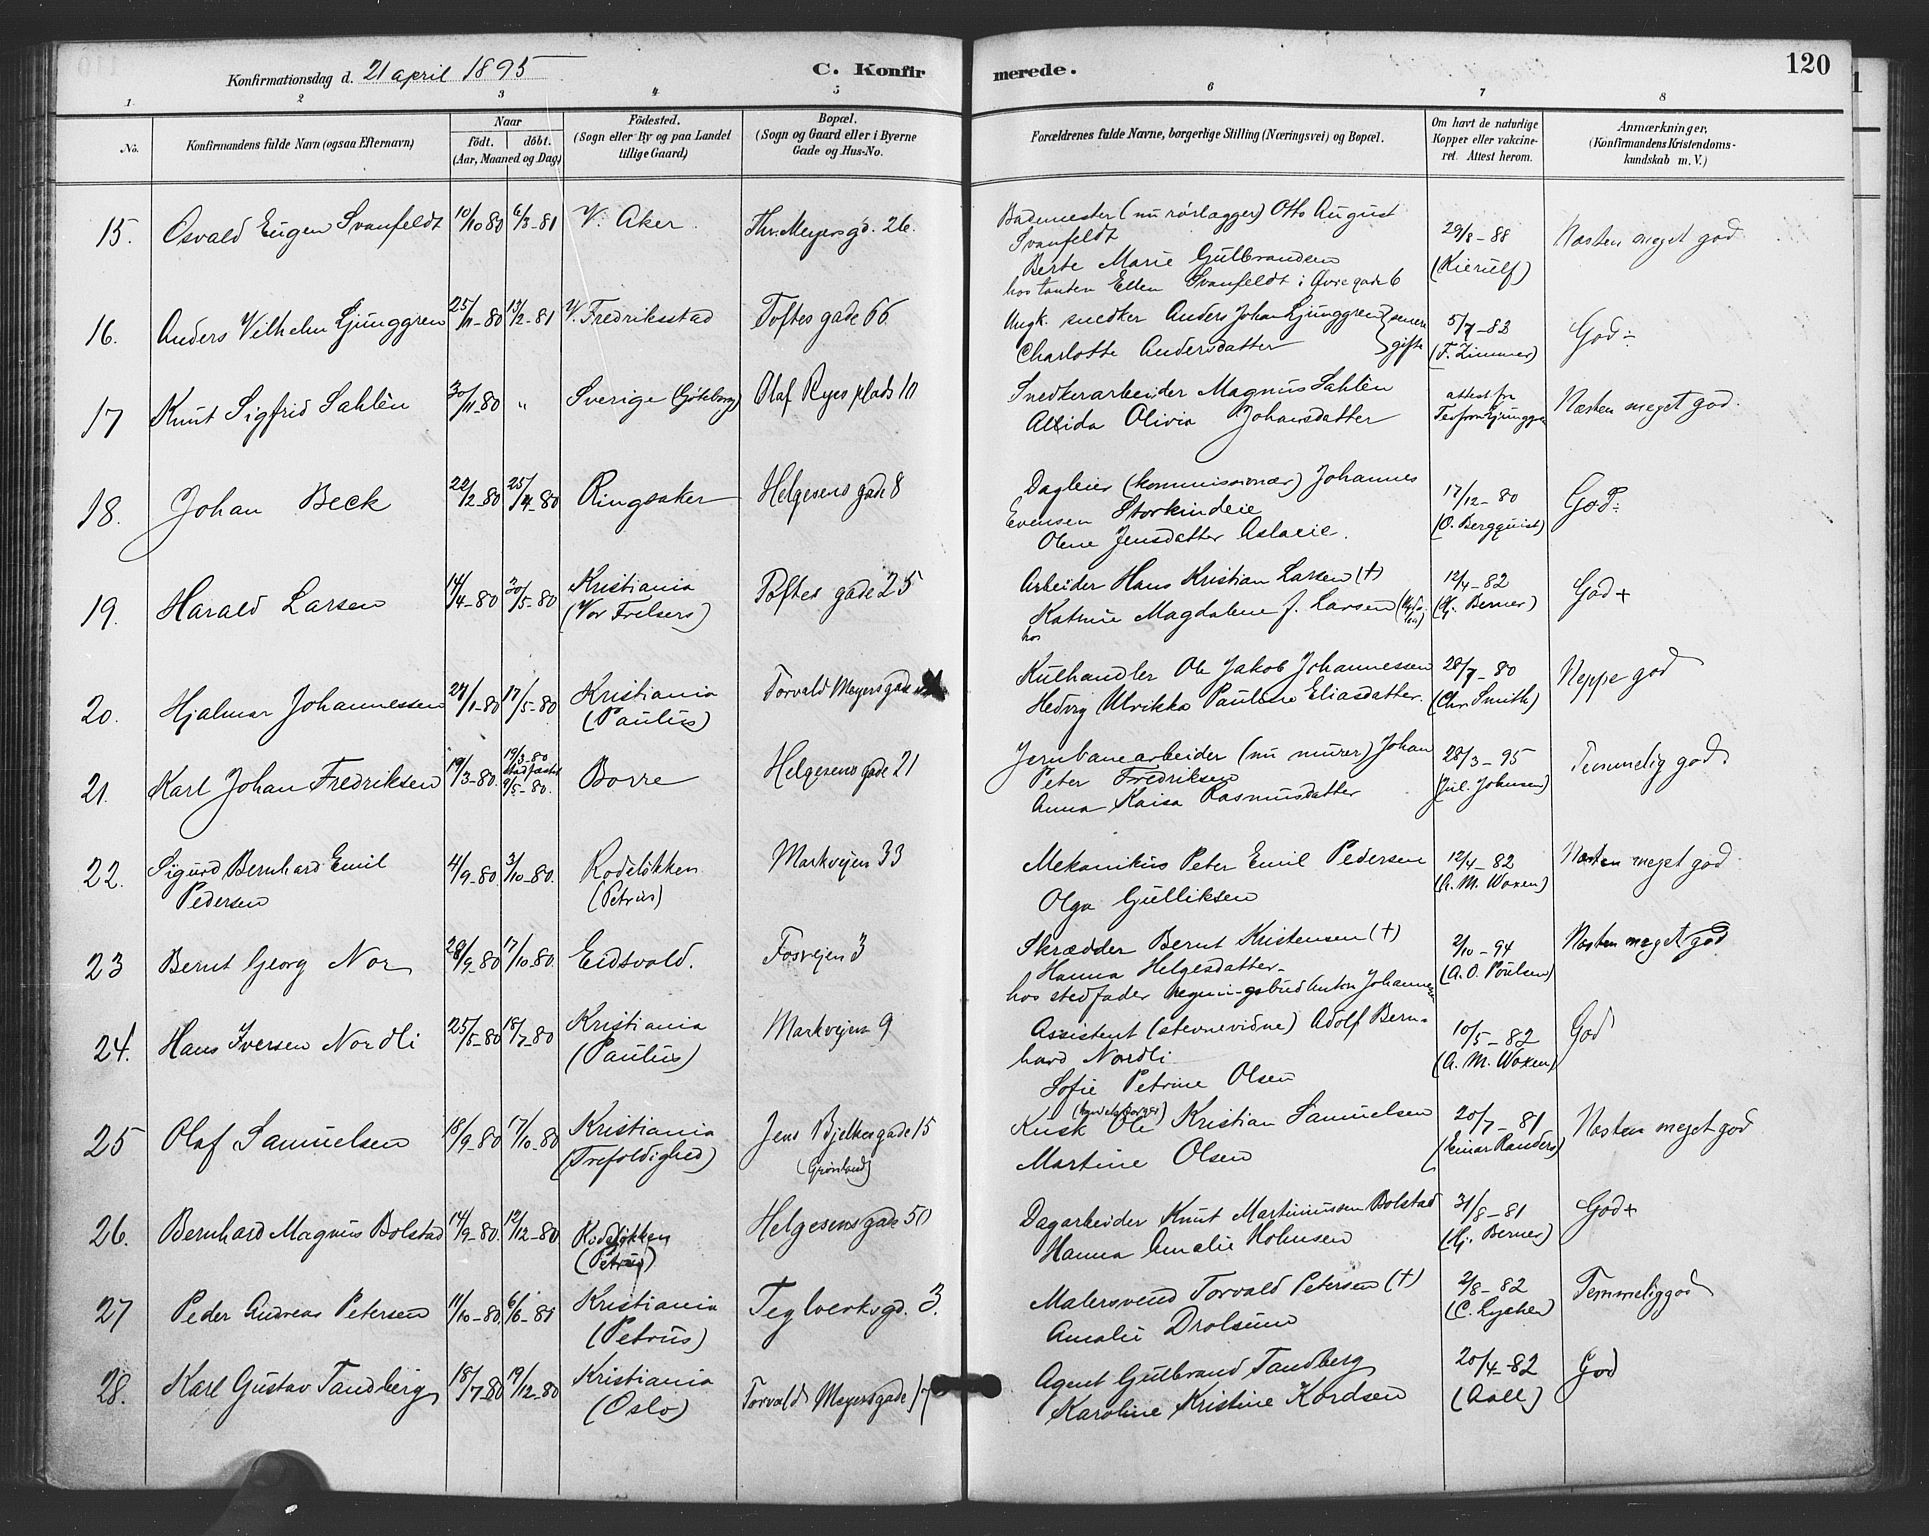 Konfirmationsdag d. 21 april 1895
C. Konfirmerede.
120
1 2 3 4 5 6 7 8
No.
Konfirmandens fulde Navn (ogsaa Efternavn)
Naar
født. døbt.
(Aar, Maaned og Dag)
Fødested.
(Sogn eller By og paa Landet
tillige Gaard)
Bopæl.
(Sogn og Gaard eller i Byerne
Gade og Hus-No.
Forældrenes fulde Navne, borgerlige Stilling (Næringsvei) og Bopæl.
Om havt de naturlige
Kopper eller vakcine-
ret. Attest herom.
Anmærkninger,
(Konfirmandens Kristendoms-
kundskab m. V.)
15. Osvald Eugen Svanfeldt 10/10 80 6/3-81 V. Aker. Thv. Meyers gd. 26.
Bademester (nu rörlægger) Otto August
Svanfeldt
Berte Marie Gulbrandsen
hos tanten Ellen Svanfeldt i Øvregade 6
29/8-88
(Kierulf)
Næsten meget god
16. Anders Vilhelm Ljunggren 25/11-80 13/2-81 V. Fredriksstad Toftes gade 66
Ungk. snedker Anders Johan Ljunggren } senere
Charlotte Andersdatter } gifte
5/7-83
(F. Zimmer)
God÷
17 Knut Sigfrid Sahlèn 30/11-80 " Sverige (Göteborg) Olaf Ryes plads 10
Snedkerarbeider Magnus Sahlèn
Allida Olivia Johansdatter
attest fra
Næsten meget god.
18. Johan Beck 22/2-80 25/4-80 Ringsaker Helgesens gade 8
Dagleier (kommissionær) Johannes
Evensen Storkindeie
Olene Jensdatter Aslaeie.
17/12-80
(O. Bergquist)
God÷
19. Harald Larsen 14/4-80 30/5-80 Kristiania
(Vor Frelsers)
Toftes gade 25
Arbeider Hans Kristian Larsen (†)
Katrine Magdalene f. Larsen
hos
12/4-82
(Hj. Berner)
God+
20. Hjalmar Johannessen 27/1-80 17/5-80 Kristiania
(Paulus)
Torvald Meyers gade
Kulhandler Ole Jakob Johannessen
Hedvig Ulrikka Pauline Eliasdatter.
28/7-80
(Chr. Smith)
Neppe god
21. Karl Johan Fredriksen 19/3-80. 19/3-80
stadfæstet
9/5-80.
Borre Helgesens gade 21
Jernbanearbeider (nu murer) Johan
Peter Fredriksen
Anna Kaisa Rasmusdatter
28/3-95
(Jul. Johnsen)
Temmelig god
22. Sigurd Bernhard Emil
Pedersen
4/9-80 3/10-80. Rodeløkken
(Petrus)
Markvejen 33
Mekanikus Peter Emil Pedersen
Olga Gulliksen
12/4-82
(A. M. Woxen)
Næsten meget god
23 Bernt Georg Nor 28/9-80 17/10-80. Eidsvold. Fosvejen 3
Skrædder Bernt Kristensen (†)
Hanna Helgesdatter
hos stedfader regningsbud Anton Johannesen
2/10-94
(A. O. Poulsen)
Næsten meget god
24. Hans Iversen Nordli 25/5-80 18/7-80 Kristiania
(Paulus)
Markvejen 9
Assistent (stevnevidne) Adolf Bern-
hard Nordli
Sofie Petrine Olsen
10/5-82
(A. M. Woxen)
God
25 Olaf Samuelsen 18/9-80 17/10-80 Kristiania
(Trefoldighed)
Jens Bjelkes gade 15
(Grønland)
Kusk Ole Kristian Samuelsen
Martine Olsen
20/7-81
(Einar Randers)
Næsten meget god
26. Bernhard Magnus Bolstad 14/9-80. 12/12-80 Rodeløkken
(Petrus)
Helgesens gade 50
Dagarbeider Knut Martinussen Bolstad
Hanna Amalie Holmsen
31/8-81
(Hj. Berner)
God+
27 Peder Andreas Petersen 11/10-80. 6/6-81 Kristiania
(Petrus)
Teglverksgd. 3.
Malersvend Torvald Petersen (†)
Amalie Drolsum
2/8-82
(C. Lysten)
Temmelig god
28. Karl Gustav Tandberg 18/7-80 19/12-80 Kristiania
(Oslo)
Torvald Meyers gade 17
Agent Gulbrand Tandberg
Karoline Kristine Kordsen
20/4-82
(Aall)
God